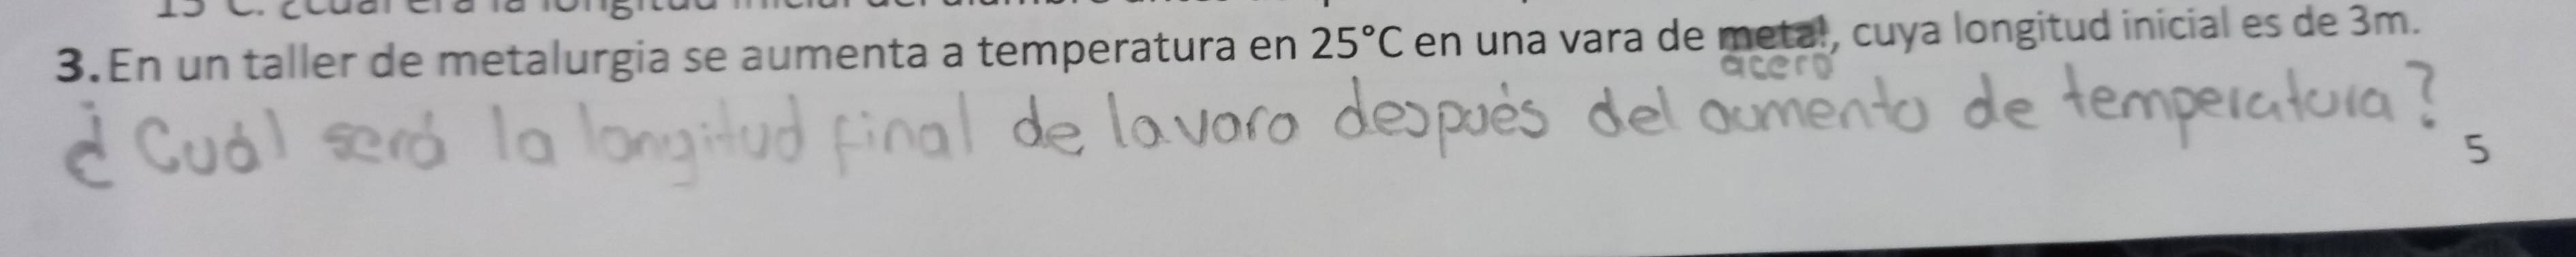 15 C. ¿Cuál era la longitud inicial del alambre
3. En un taller de metalurgia se aumenta a temperatura en 25°C en una vara de metal, cuya longitud inicial es de 3m.
acero
¿Cuál será la longitud final de la vara después del aumento de temperatura?
5